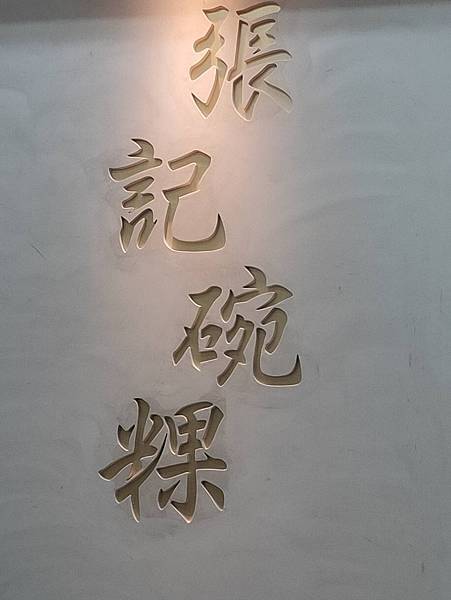 張記碗粿